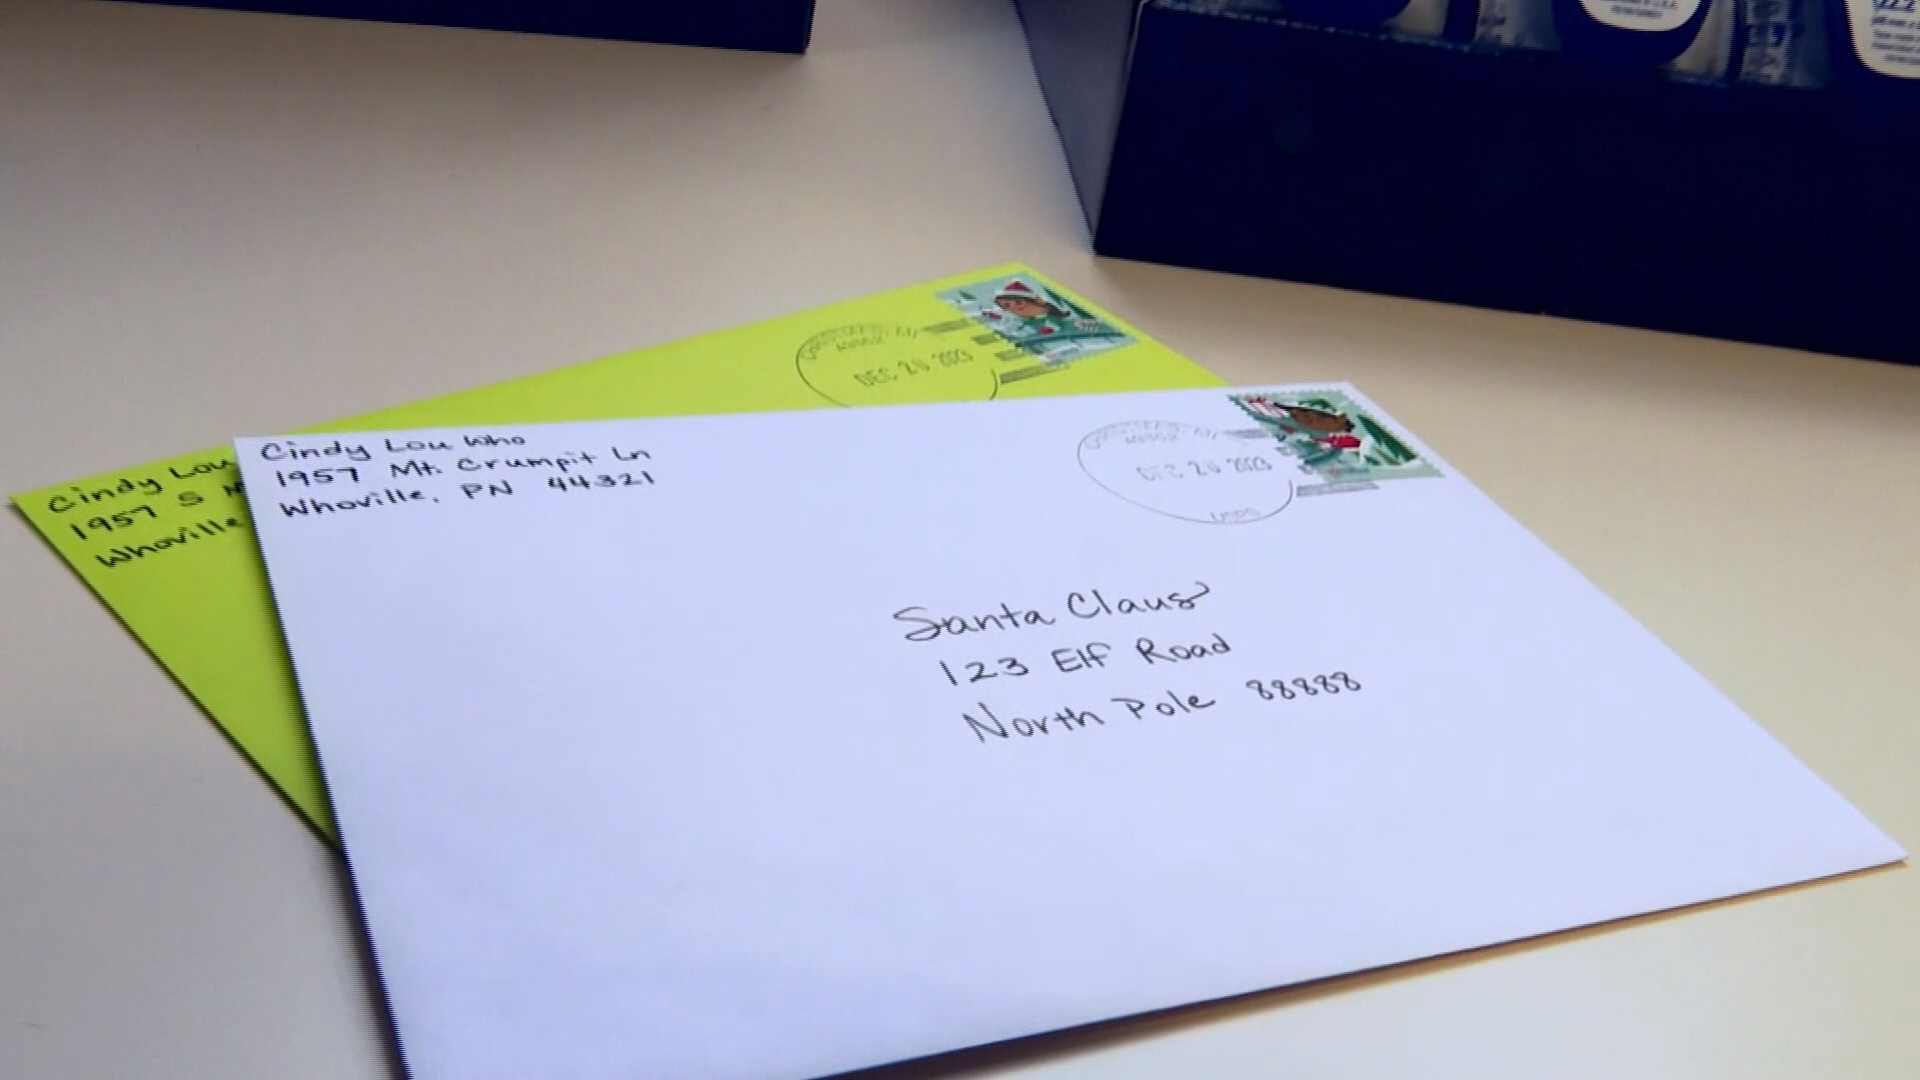 Cindy Lou Who
1957 Mt. Crumpit Ln
Whoville, PN 44321
Santa Claus
123 Elf Road
North Pole 88888
DEC 20 2023
USPS
Cindy Lou
1957 S
Whoville
49862
DEC 20 2023